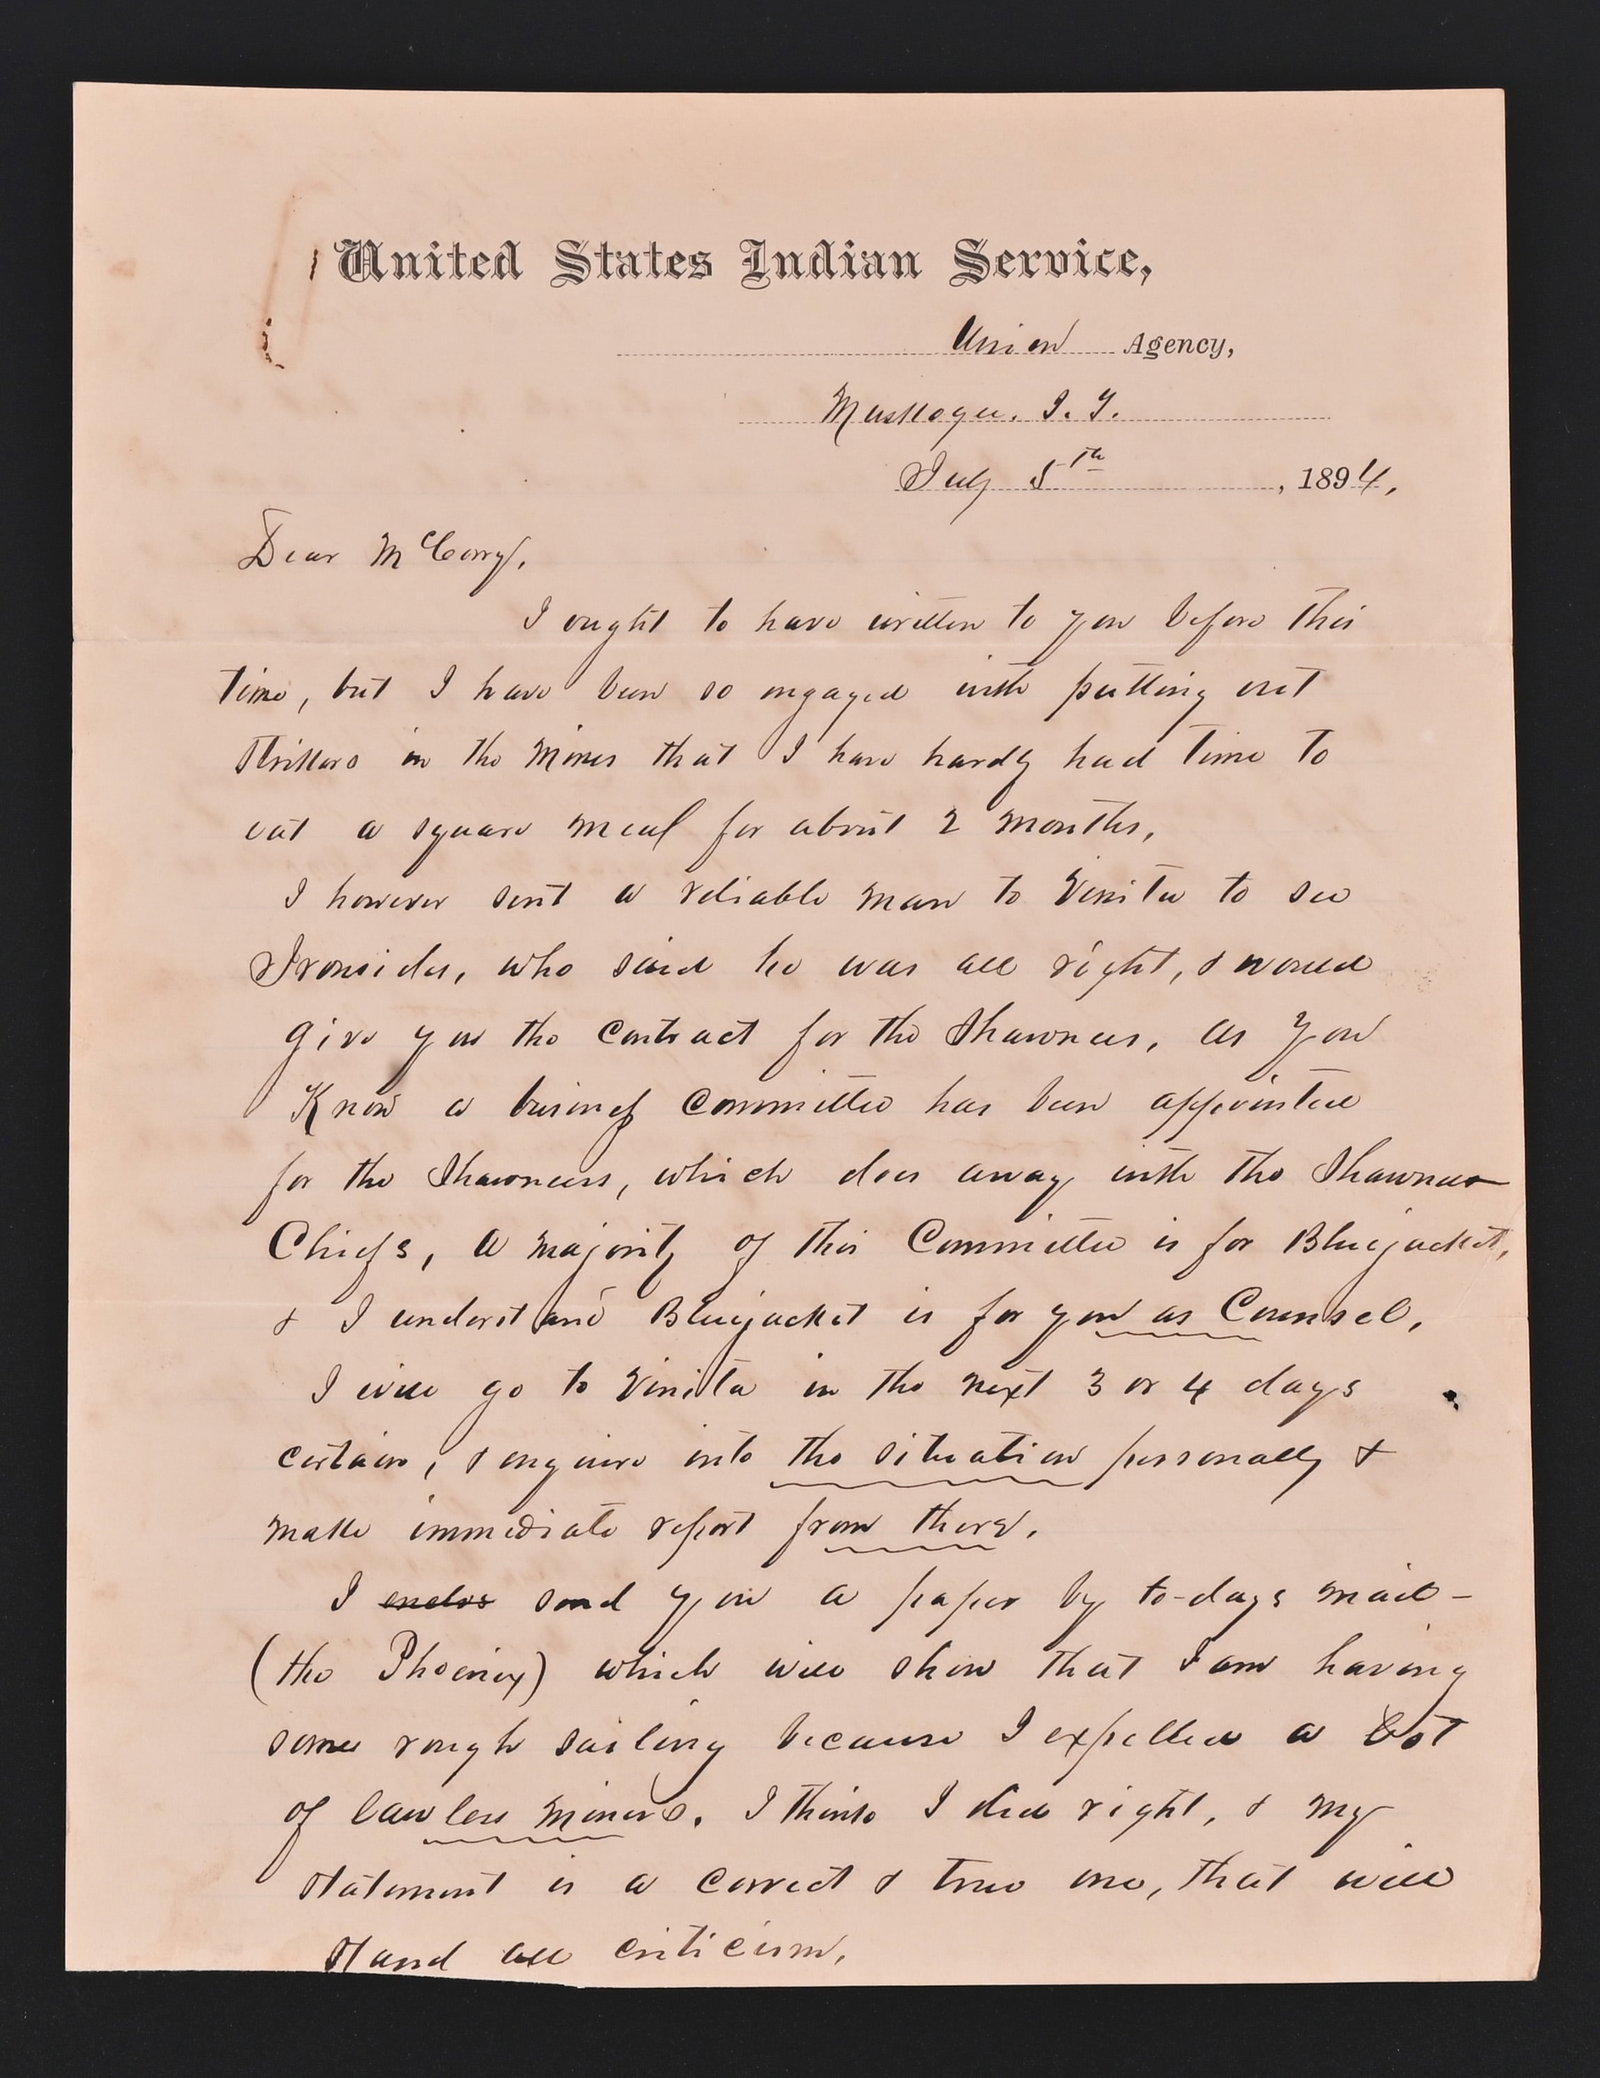 United States Indian Service,
Union Agency,
Muskogee. I. T.
July 5th, 1894,
Dear McCorry,
I ought to have written to you before this
time, but I have been so engaged with putting out
Strikers in the Mines that I have hardly had time to
eat a square meal for about 2 months,
I however sent a reliable man to Vinita to see
Ironsides, who said he was all right, & would
give you the contract for the Shawnees, as you
Know a business committee has been appointed
for the Shawnees, which does away with the Shawnee
Chiefs, a majority of this Committee is for Bluejacket,
& I understand Bluejacket is for you as Counsel,
I will go to Vinita in the next 3 or 4 days
certain, & enquire into the situation personally &
make immediate report from there.
I enclos send you a paper by to-days mail -
(the Phoenix) which will show that I am having
some rough sailing because I expelled a lot
of lawless miners. I think I did right, & my
statement is a correct & true one, that will
stand all criticism,